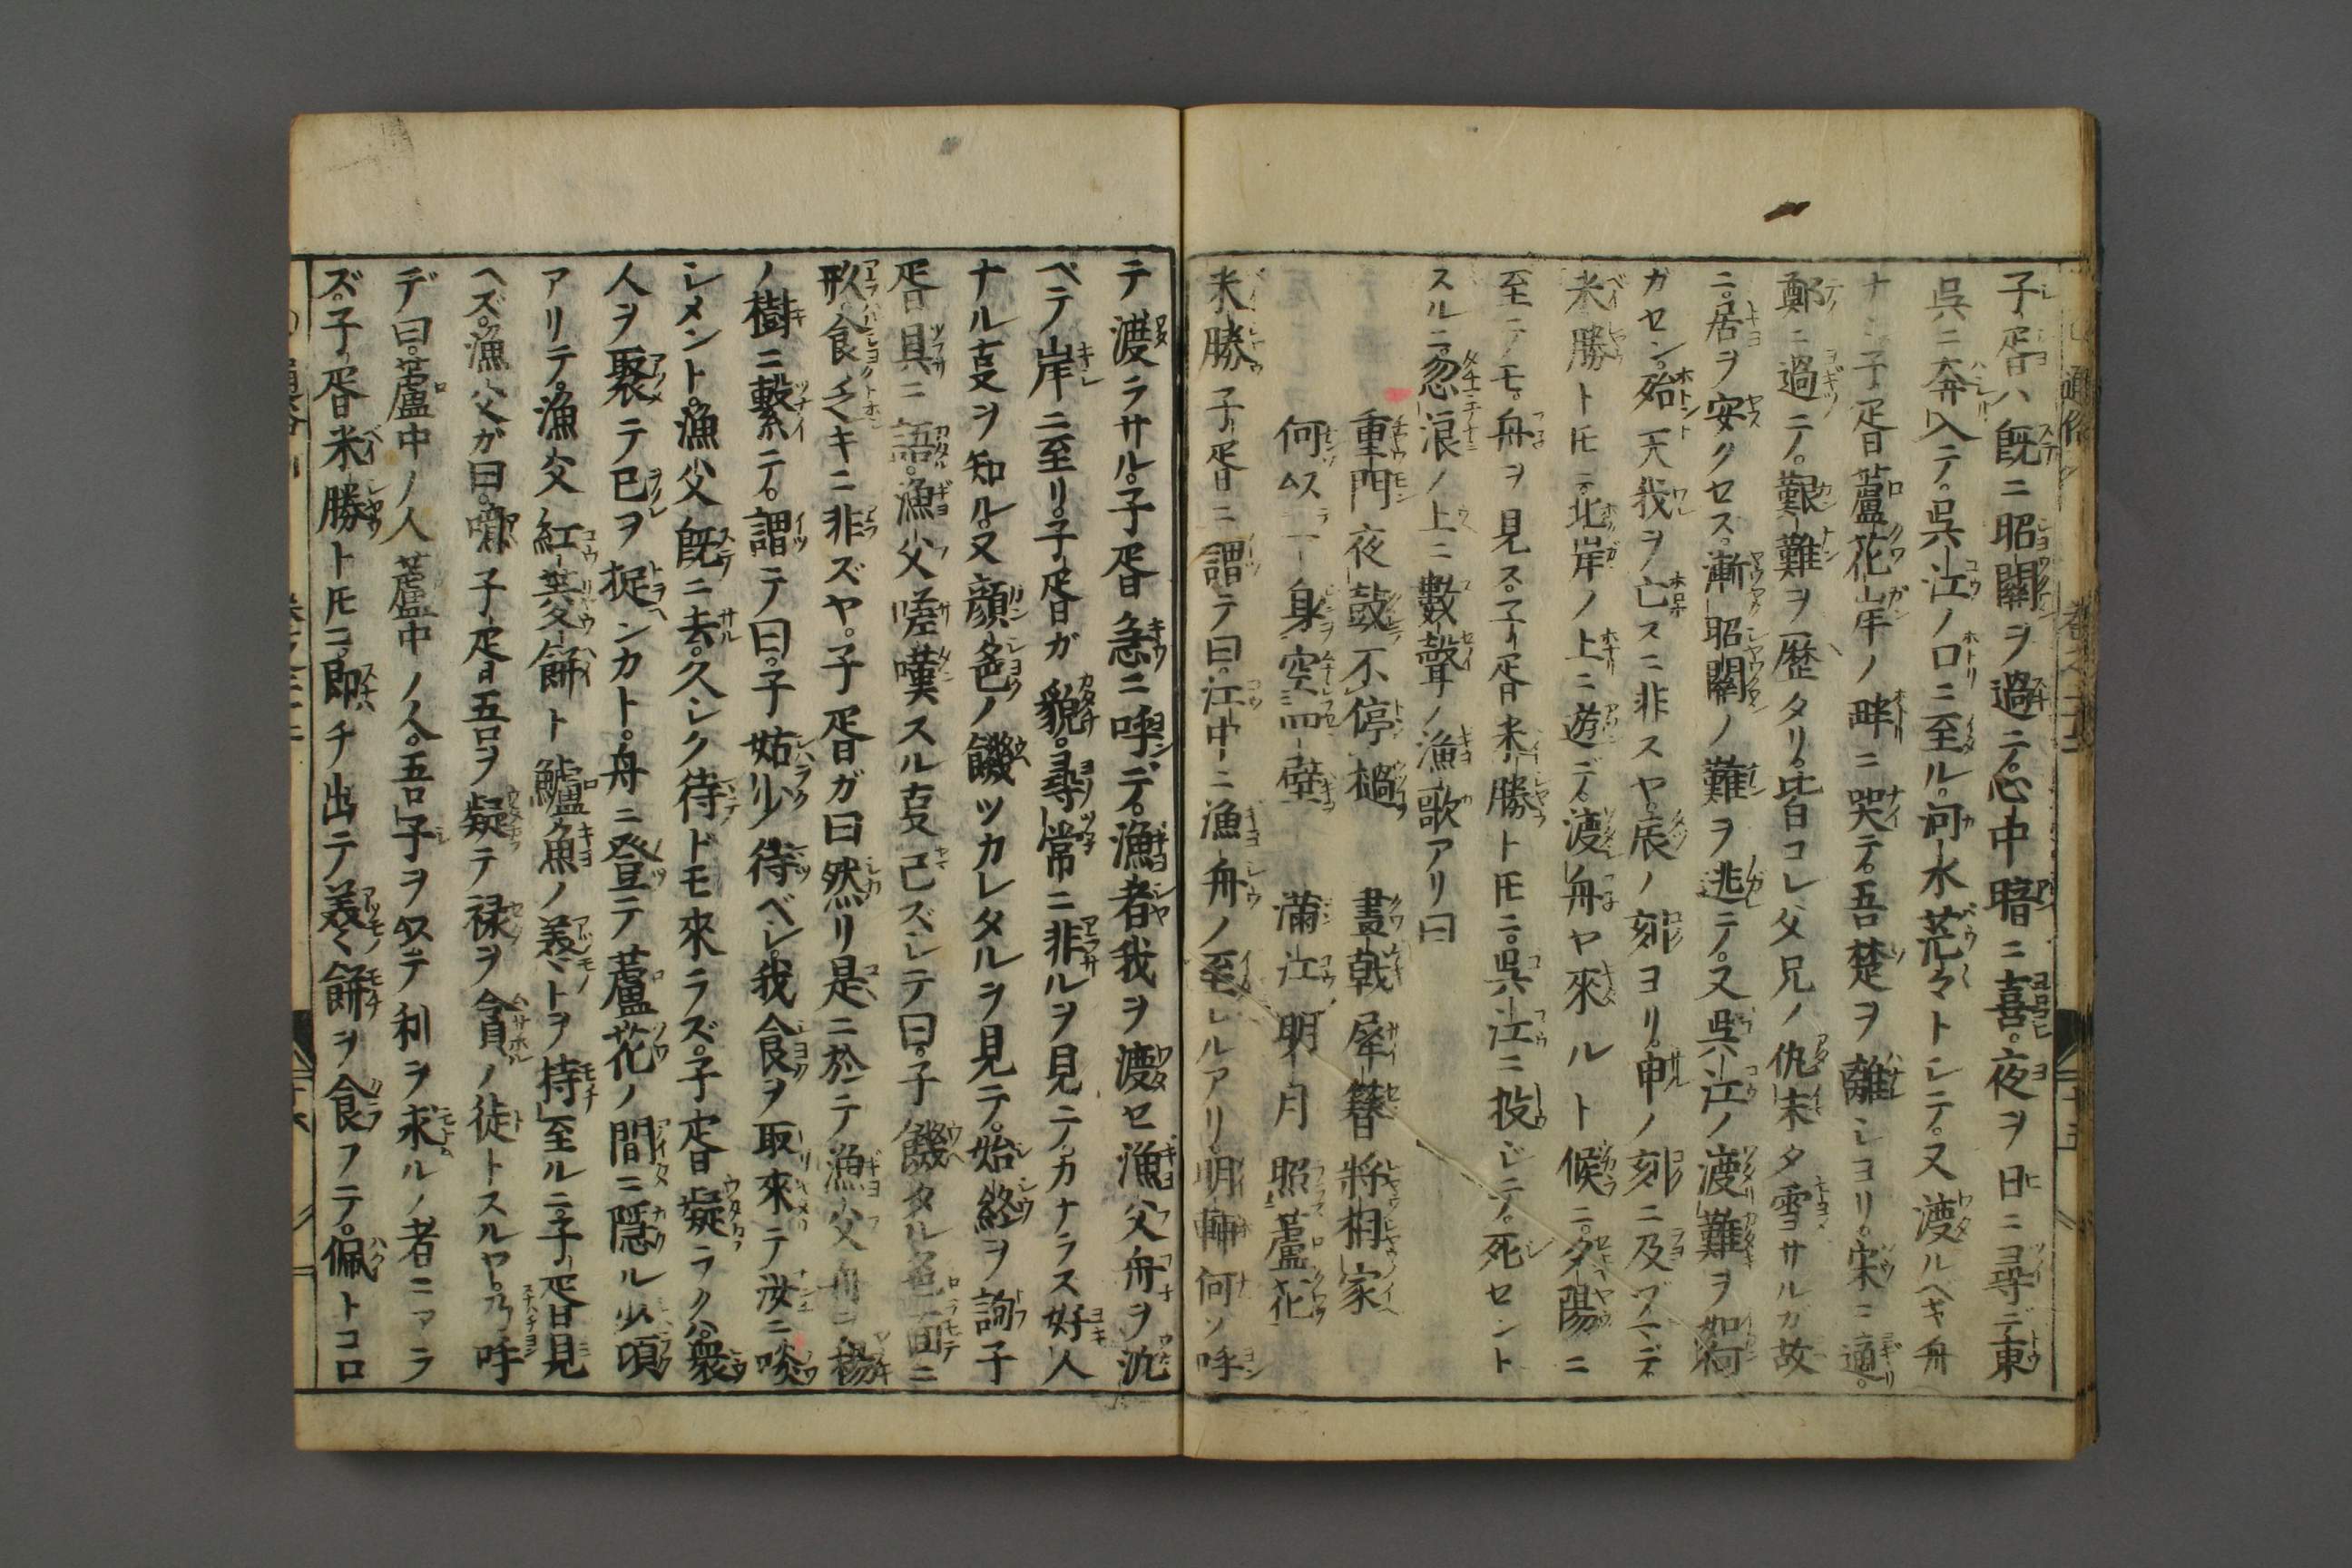 子胥ハ既ニ昭關ヲ過テ。心中暗ニ喜。夜ヲ日ニ尋デ東
呉ニ奔入テ。呉江ノ口ニ至ル。河水茫々トシテ。又渡ルヘキ舟
ナシ子胥蘆花岸ノ畔ニ哭テ。吾楚ヲ離シヨリ。宋ニ適。
鄭ニ過テ。艱難ヲ歴タリ。皆コレ父兄ノ仇未タ雪サルガ故
ニ。居ヲ安クセス。漸昭關ノ難ヲ逃テ。又呉江ノ渡難ヲ如何
ガセン。殆天我ヲ亡スニ非スヤ。辰ノ刻ヨリ。申ノ刻ニ及ブマデ
米勝トモニ北岸ノ上ニ遊デ。渡舟ヤ來ルト候ニ。夕陽ニ
至テモ。舟ヲ見ス。子胥米勝トモニ。呉江ニ投ジテ。死セント
スルニ。忽浪ノ上ニ數聲ノ漁歌アリ曰
重門夜鼓不停撾 畫戟犀簪將相家
何似一身空四壁 滿江明月照蘆花
米勝子胥ニ謂テ曰。江中ニ漁舟ノ至レルアリ。明輔何ソ呼
テ渡ラサル。子胥急ニ呼デ。漁者我ヲ渡セ漁父舟ヲ泛
ベテ岸ニ至リ。子胥ガ貌。尋常ニ非ルヲ見テ。カナラス好人
ナル事ヲ知ル。又顔色ノ饑ツカレタルヲ見テ。始終ヲ詢子
胥具ニ語。漁父嗟嘆スル事已ズシテ曰。子饑タル色面ニ
形食乏キニ非ズヤ。子胥ガ曰然リ是ニ於テ漁父舟ヲ楊
ノ樹ニ繋テ。謂テ曰。子姑少待ベシ。我食ヲ取來テ汝ニ啖
シメント。漁父既ニ去。久シク待ドモ來ラズ。子胥疑ラクハ。衆
人ヲ聚テ己ヲ捉ンカト。舟ニ登テ蘆花ノ間ニ隠ル少頃
アリテ。漁父紅英餅ト鱸魚ノ羹トヲ持至ルニ。子胥見
ヘズ。漁父ガ曰。噫子胥吾ヲ疑テ禄ヲ貪ノ徒トスルヤ。乃呼
デ曰。蘆中ノ人蘆中ノ人。吾子ヲ以テ利ヲ求ルノ者ニアラ
ズ。子胥米勝トモニ。即チ出テ羹餅ヲ食フテ。佩トコロ